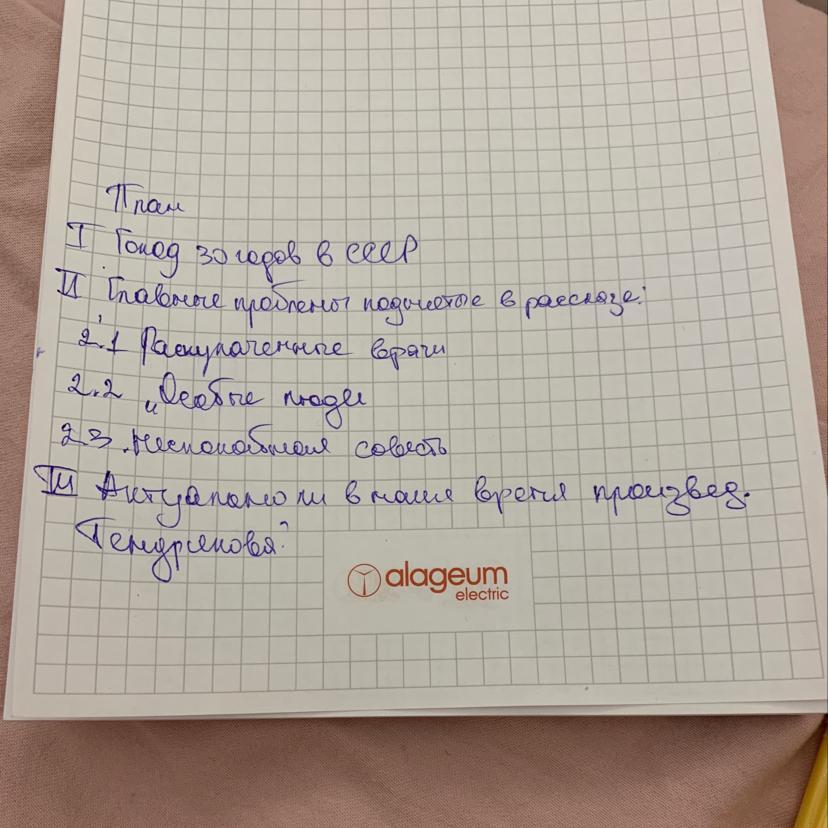 План
I Голод 30 годов в СССР
II Главные проблемы поднятые в рассказе:
2.1 Раскулаченные врачи
2.2 „Особые люди
2.3. Неспокойная совесть
III Актуально ли в наше время произвед.
Тендрякова?
alageum
electric